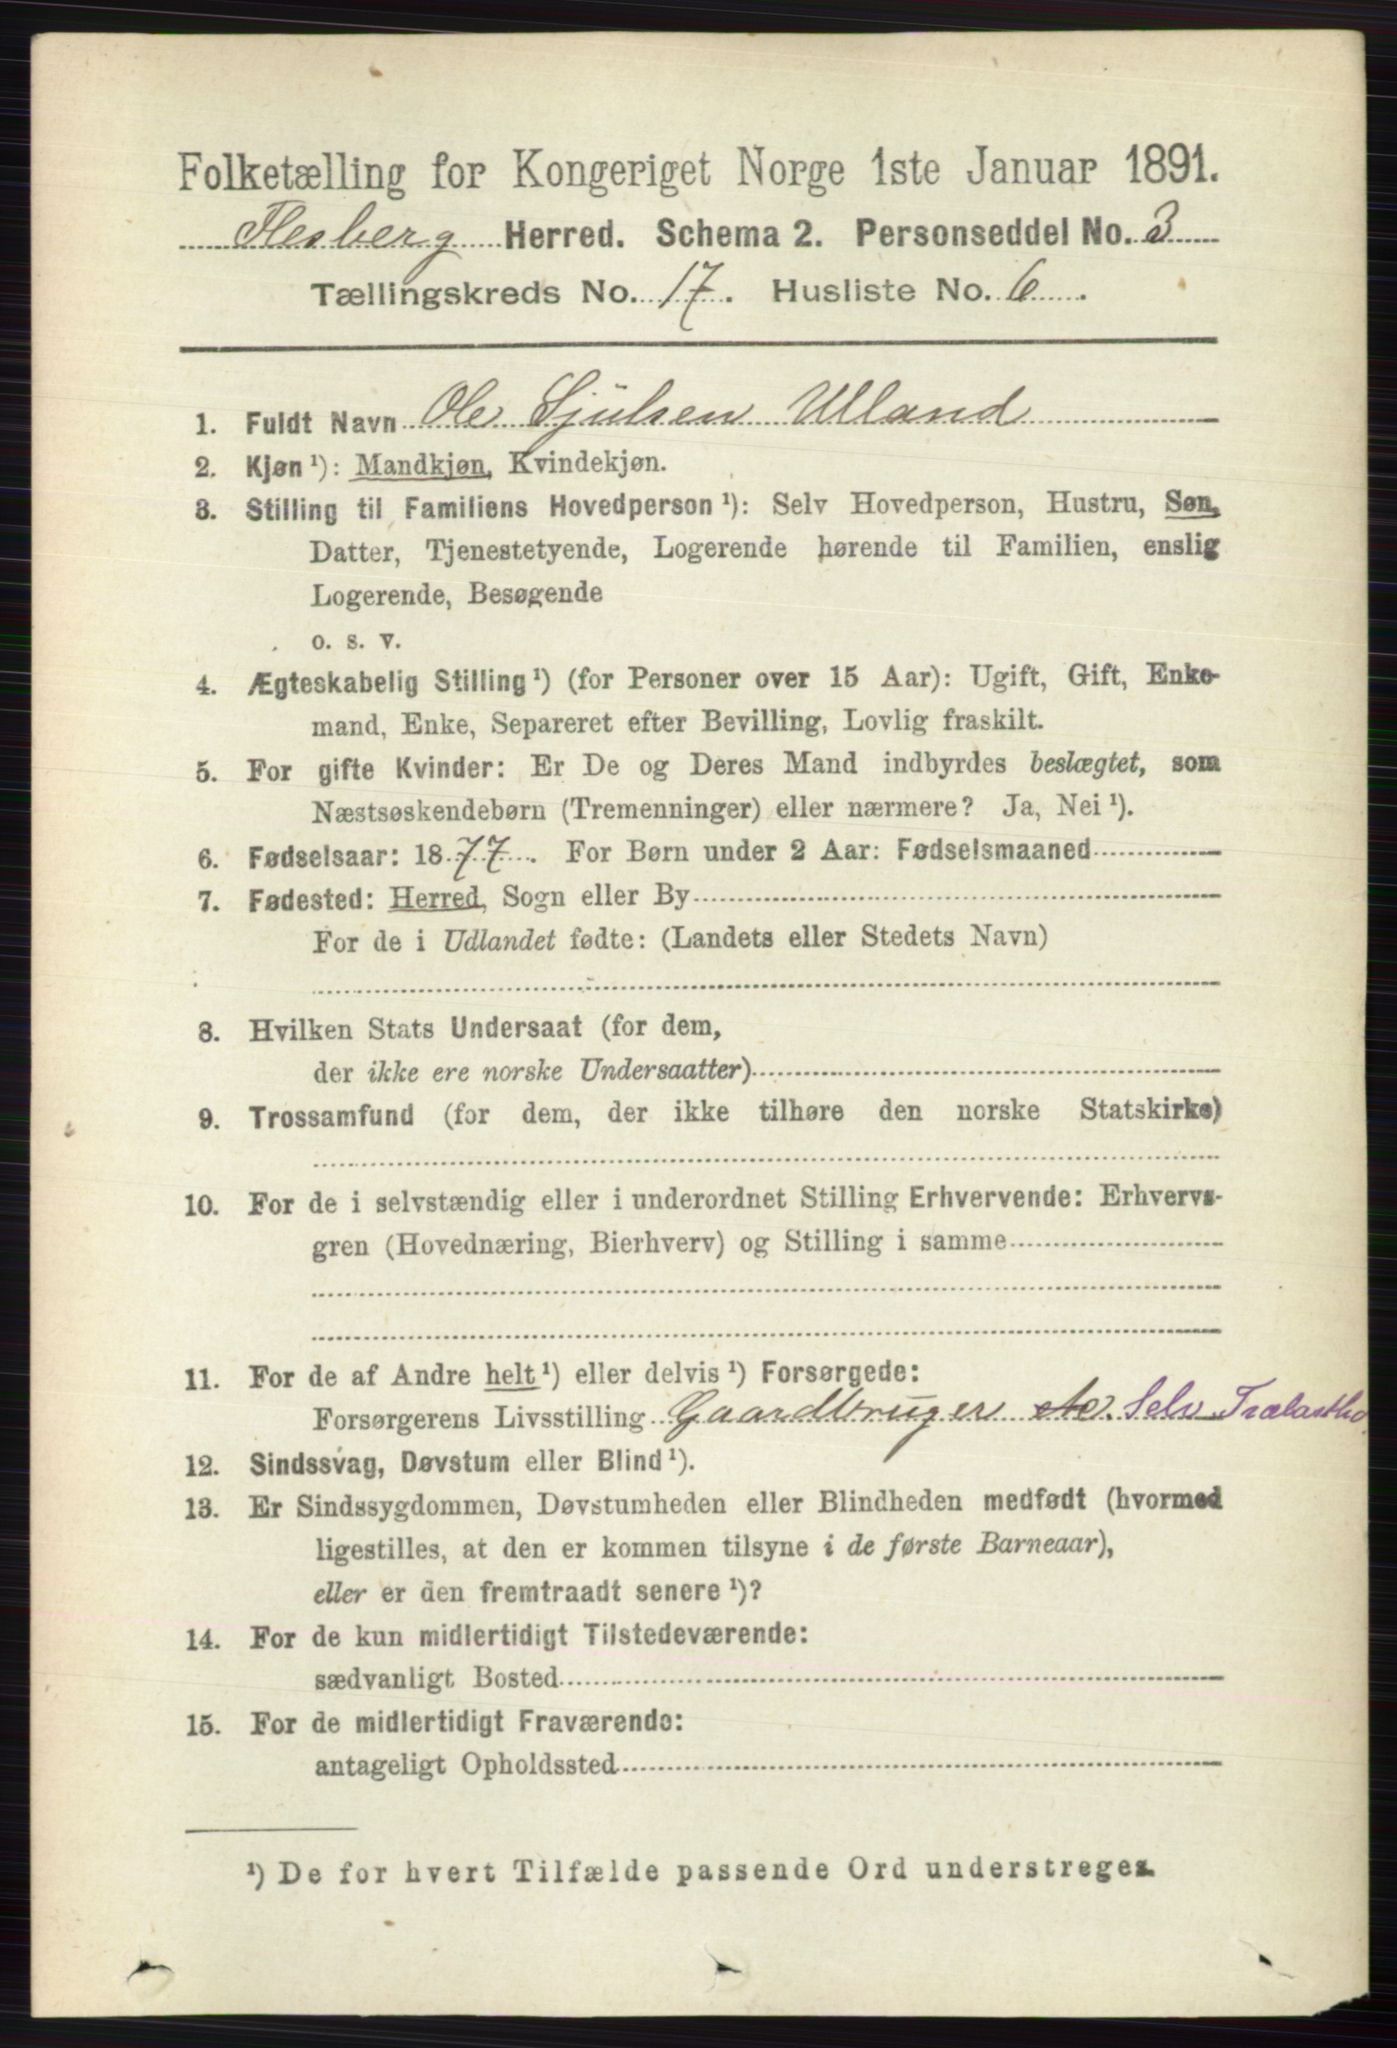 Folketælling for Kongeriget Norge 1ste Januar 1891.
Flesberg Herred. Schema 2. Personseddel No. 3
Tællingskreds No. 17. Husliste No. 6.
1. Fuldt Navn Ole Sjulsen Ulland
2. Kjøn ¹): Mandkjøn, Kvindekjøn.
3. Stilling til Familiens Hovedperson ¹): Selv Hovedperson, Hustru, Søn,
Datter, Tjenestetyende, Logerende hørende til Familien, enslig
Logerende, Besøgende
o. s. v.
4. Ægteskabelig Stilling ¹) (for Personer over 15 Aar): Ugift, Gift, Enke-
mand, Enke, Separeret efter Bevilling, Lovlig fraskilt.
5. For gifte Kvinder: Er De og Deres Mand indbyrdes beslægtet, som
Næstsøskendebørn (Tremenninger) eller nærmere? Ja, Nei ¹).
6. Fødselsaar: 1877. For Børn under 2 Aar: Fødselsmaaned
7. Fødested: Herred, Sogn eller By
For de i Udlandet fødte: (Landets eller Stedets Navn)
8. Hvilken Stats Undersaat (for dem,
der ikke ere norske Undersaatter)
9. Trossamfund (for dem, der ikke tilhøre den norske Statskirke)
10. For de i selvstændig eller i underordnet Stilling Erhvervende: Erhvervs-
gren (Hovednæring, Bierhverv) og Stilling i samme
11. For de af Andre helt ¹) eller delvis ¹) Forsørgede:
Forsørgerens Livsstilling Gaardbruger Selv Trælasth
12. Sindssvag, Døvstum eller Blind ¹).
13. Er Sindssygdommen, Døvstumheden eller Blindheden medfødt (hvormed
ligestilles, at den er kommen tilsyne i de første Barneaar),
eller er den fremtraadt senere ¹)?
14. For de kun midlertidigt Tilstedeværende:
sædvanligt Bosted
15. For de midlertidigt Fraværende:
antageligt Opholdssted
¹) De for hvert Tilfælde passende Ord understreges.